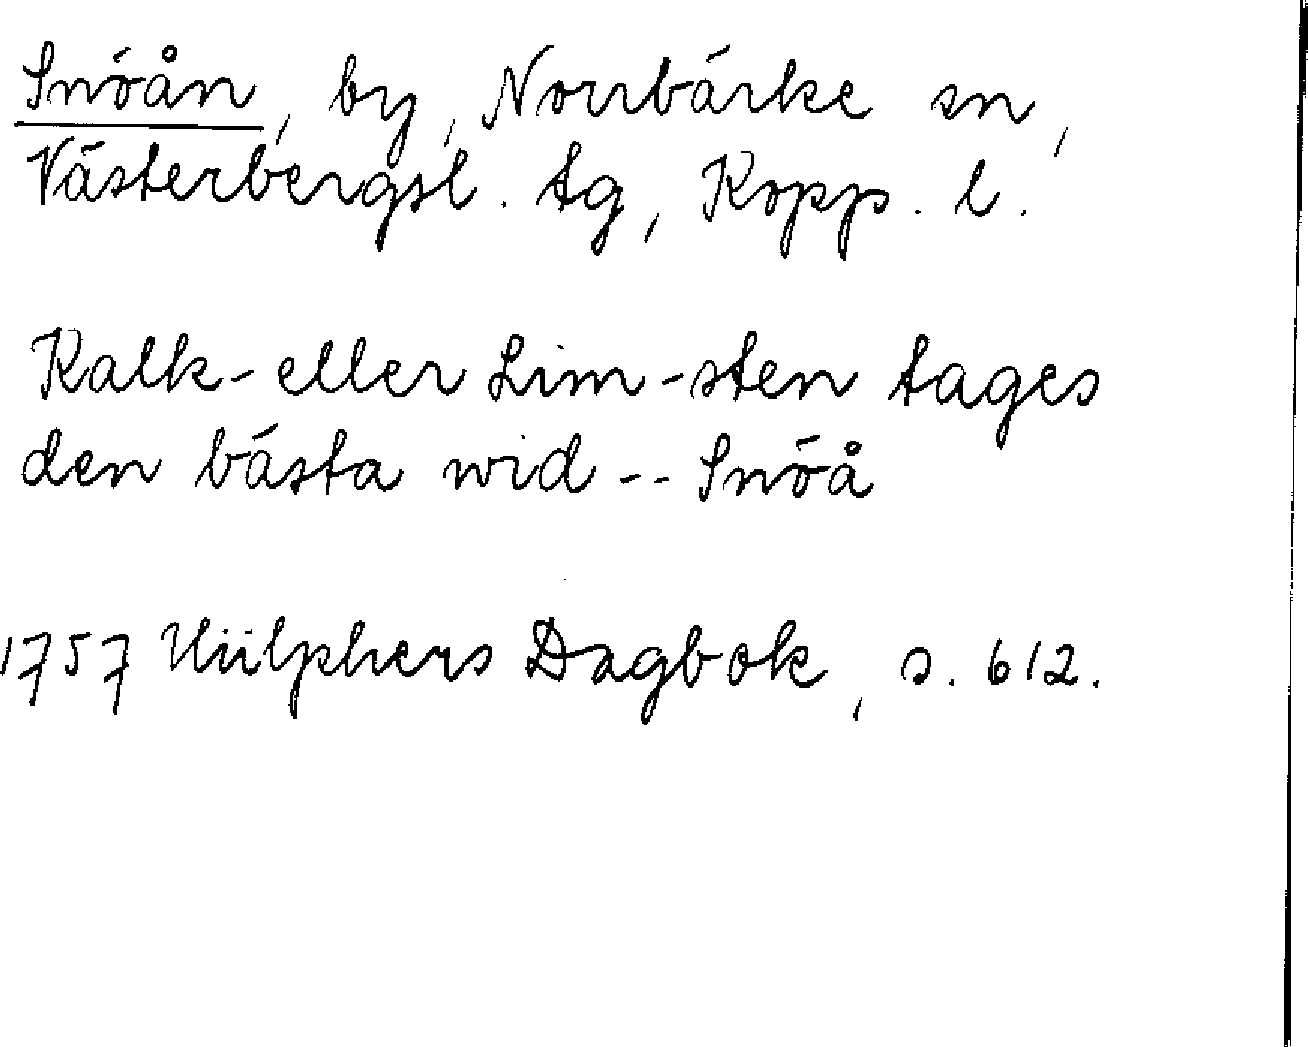 Snöån, by, Norrbärke sn,
Västerbergsl. tg, Kopp. l.
Kalk- eller Lim-sten tages
den bästa wid -- Snöå
1757 Hülphers Dagbok, s. 612.